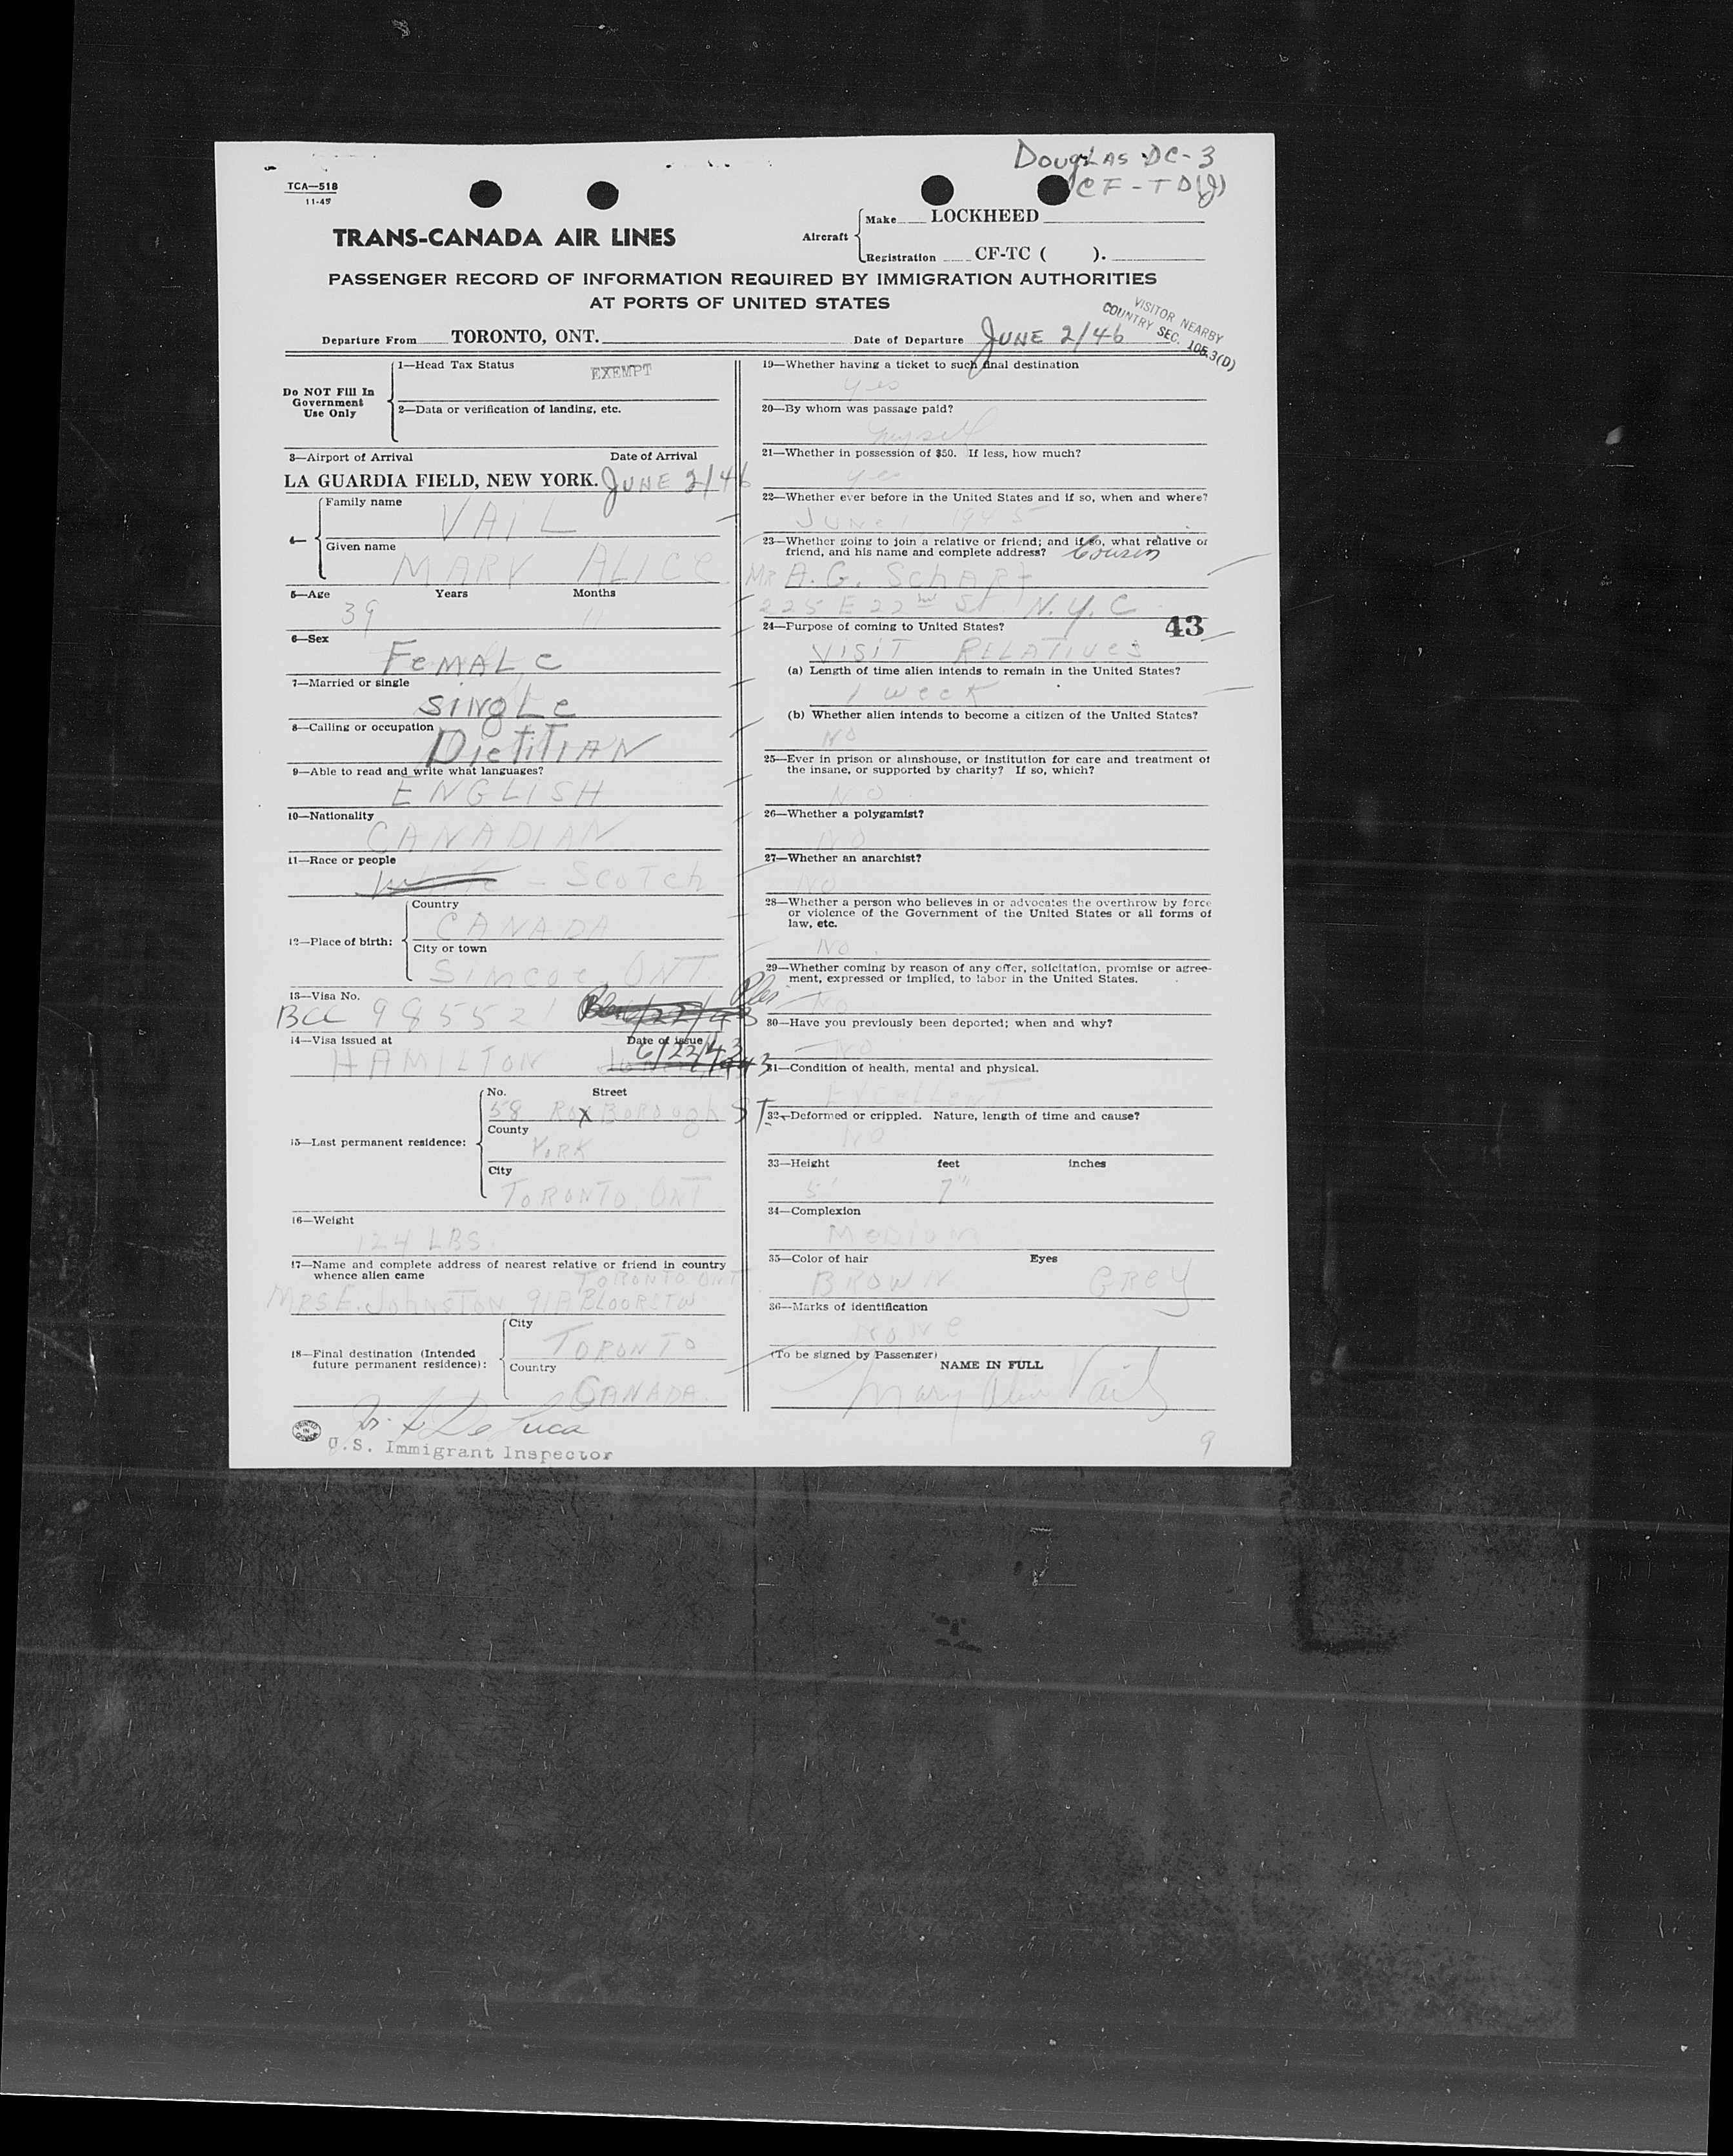 Douglas DC-3
CF-TD(J)
TCA—518
11-45
TRANS-CANADA AIR LINES
Aircraft
Make LOCKHEED
Registration CF-TC ( ).
PASSENGER RECORD OF INFORMATION REQUIRED BY IMMIGRATION AUTHORITIES
AT PORTS OF UNITED STATES
VISITOR NEARBY
COUNTRY SEC. 105.3(D)
Departure From TORONTO, ONT.
Date of Departure JUNE 2/46
Do NOT Fill In
Government
Use Only
1—Head Tax Status EXEMPT
2—Data or verification of landing, etc.
3—Airport of Arrival Date of Arrival
LA GUARDIA FIELD, NEW YORK. JUNE 2/46
4—
Family name
VAIL
Given name
MARY ALICE
5—Age Years Months
39 11
6—Sex
FeMALe
7—Married or single
SiNgLe
8—Calling or occupation
DieTiTiAN
9—Able to read and write what languages?
ENGLISH
10—Nationality
CANADIAN
11—Race or people
— Scotch
12—Place of birth:
Country
CANADA
City or town
Simcoe ONT.
13—Visa No.
BCC 985521
14—Visa issued at Date of issue
HAMILTON 6/22/43
15—Last permanent residence:
No. Street
58 RoxBoRough ST.
County
YoRK
City
ToRONTO. ONT
16—Weight
124 LBS.
17—Name and complete address of nearest relative or friend in country
whence alien came
TORONTO ONT
MRS E. JohnsTON 91A BLOOR ST W
18—Final destination (Intended
future permanent residence):
City
TORONTO
Country
CANADA.
De Luca
U.S. Immigrant Inspector
PRINTED IN CANADA
19—Whether having a ticket to such final destination
yes
20—By whom was passage paid?
myself
21—Whether in possession of $50. If less, how much?
yes
22—Whether ever before in the United States and if so, when and where?
JUNe 1 1945
23—Whether going to join a relative or friend; and if so, what relative or
friend, and his name and complete address? Cousin
MR A. G. SchARf
225 E 22nd St. N.Y.C
43
24—Purpose of coming to United States?
VISIT RELATIVES
(a) Length of time alien intends to remain in the United States?
1 week
(b) Whether alien intends to become a citizen of the United States?
NO
25—Ever in prison or almshouse, or institution for care and treatment of
the insane, or supported by charity? If so, which?
NO
26—Whether a polygamist?
NO
27—Whether an anarchist?
NO
28—Whether a person who believes in or advocates the overthrow by force
or violence of the Government of the United States or all forms of
law, etc.
NO
29—Whether coming by reason of any offer, solicitation, promise or agree-
ment, expressed or implied, to labor in the United States.
NO
30—Have you previously been deported; when and why?
NO
31—Condition of health, mental and physical.
EXCELLENT
32—Deformed or crippled. Nature, length of time and cause?
NO
33—Height feet inches
5' 7"
34—Complexion
MeDium
35—Color of hair Eyes
BROWN GRey
36—Marks of identification
NoNe
(To be signed by Passenger)
NAME IN FULL
Mary Alice Vail
9